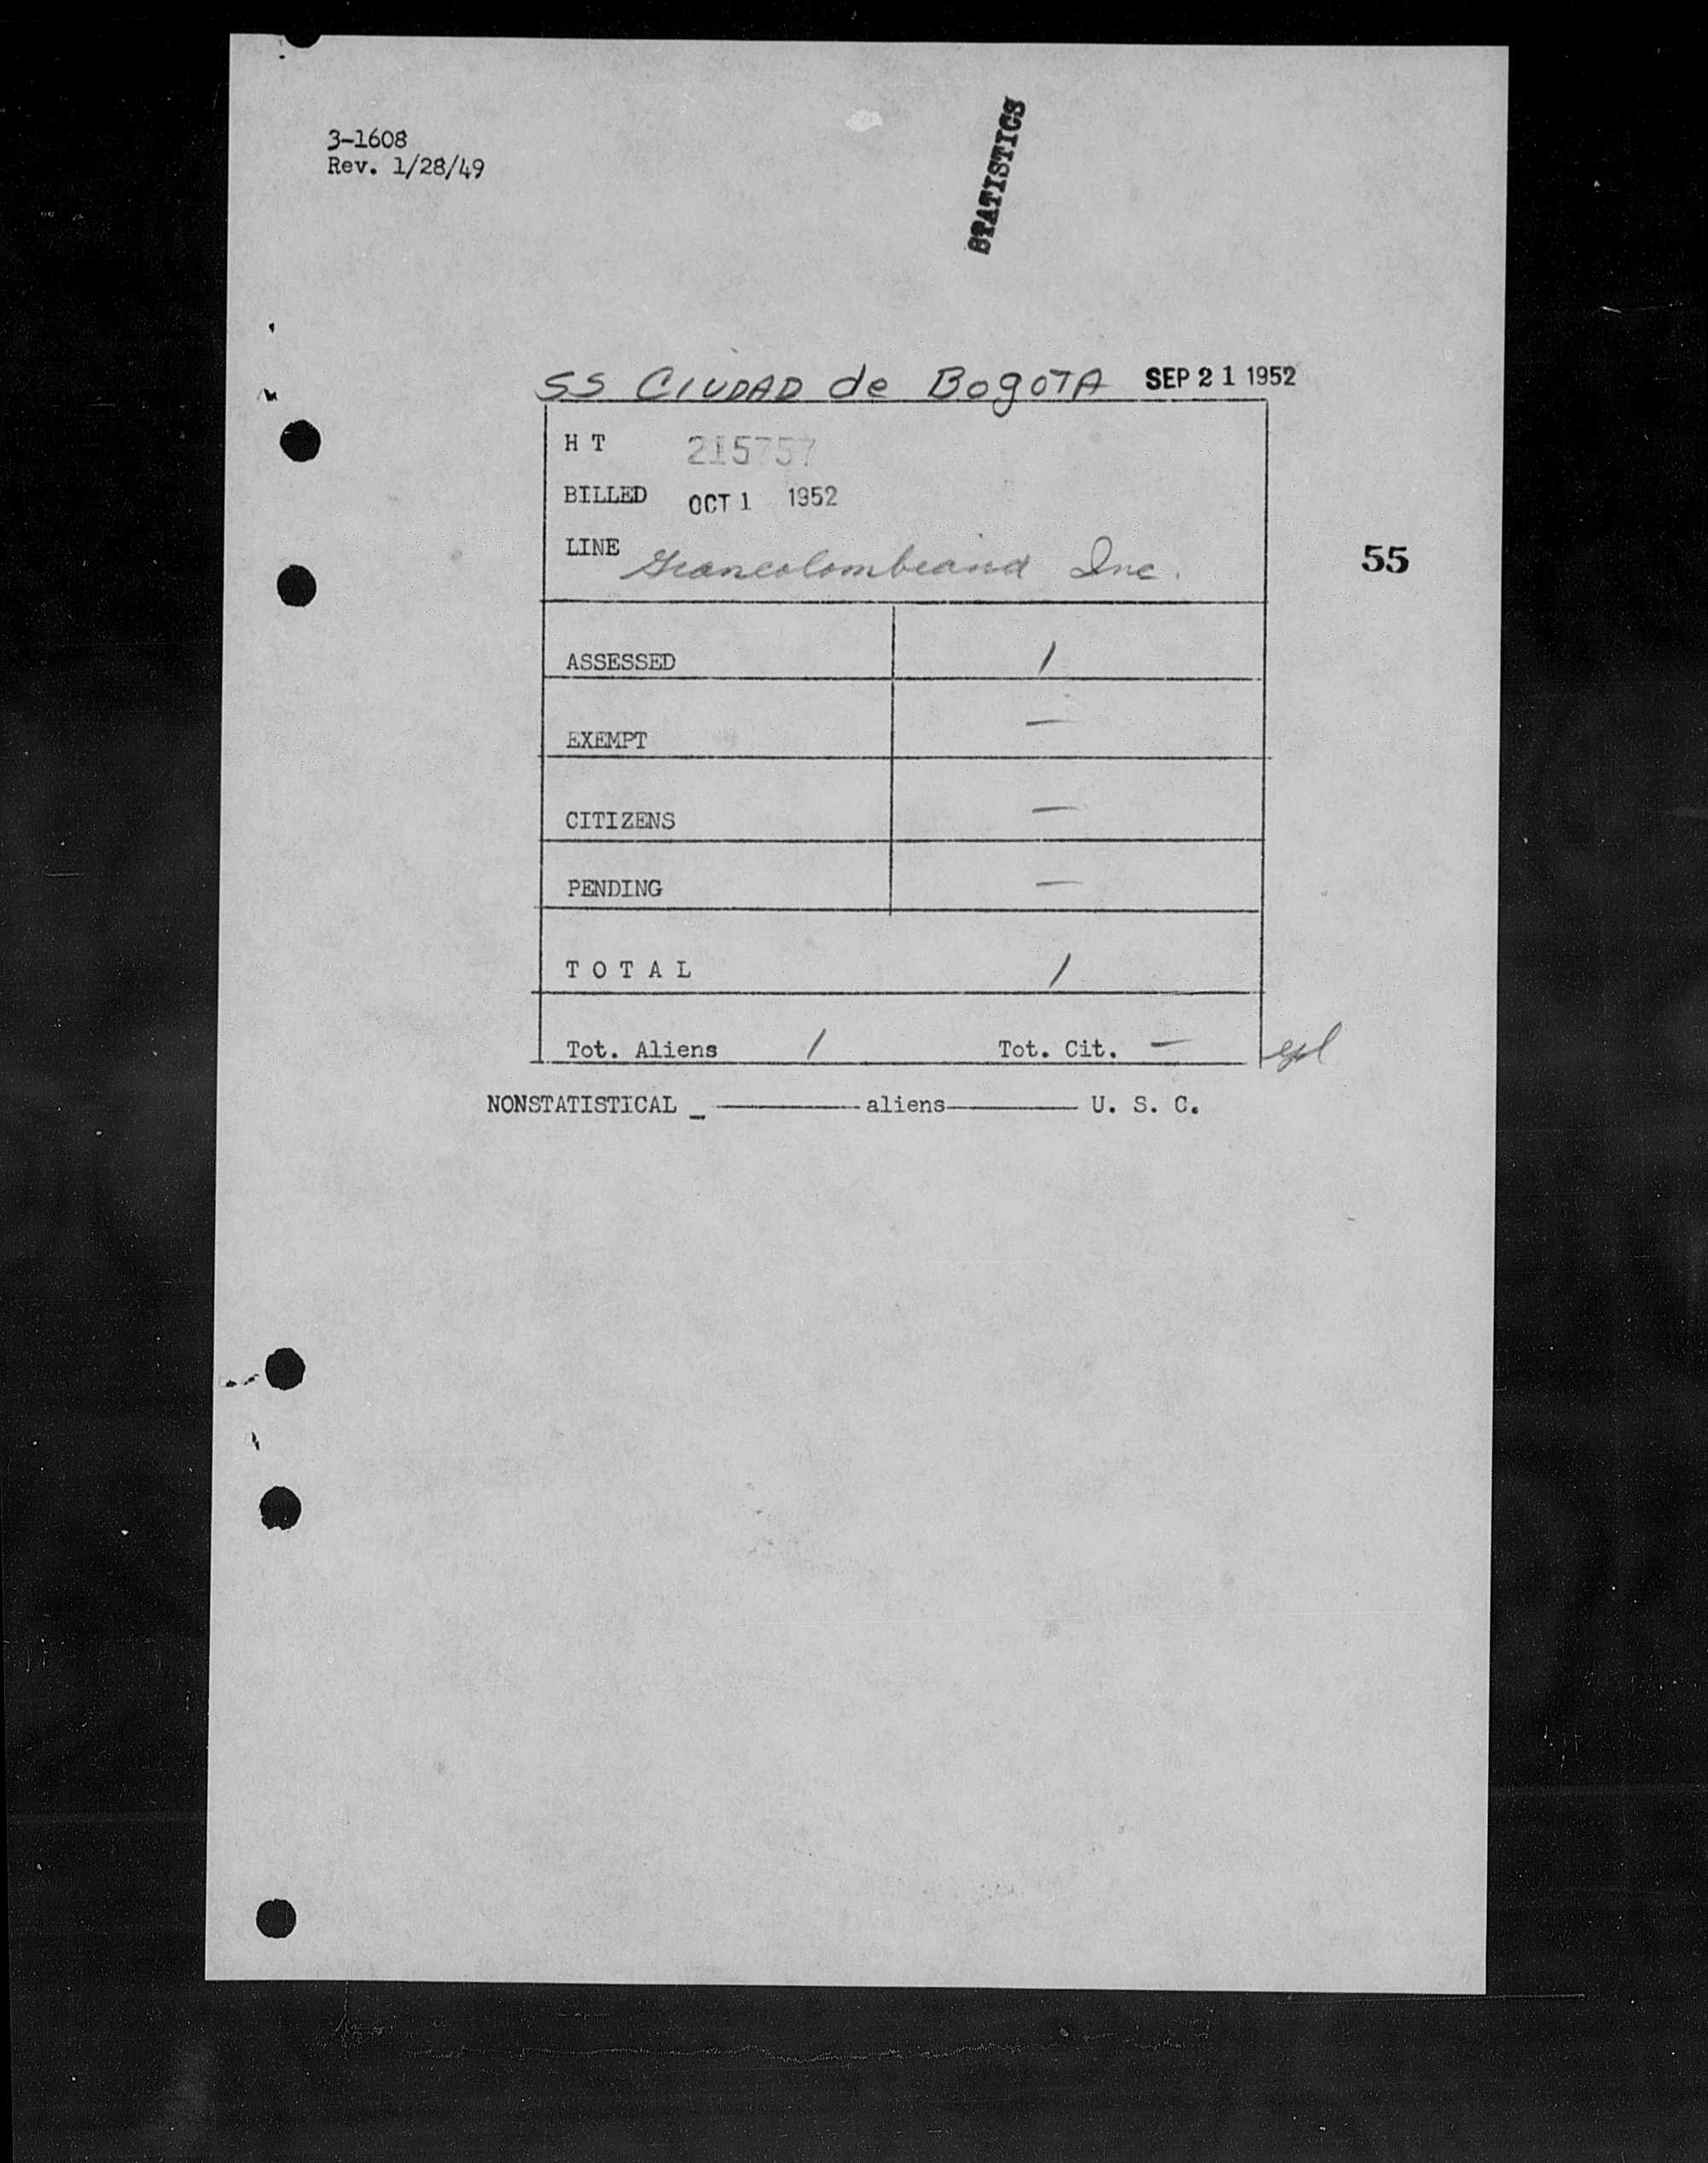 3-1608
Rev. 1/28/49
STATISTICS
SS CIUDAD de BogoTA SEP 21 1952
H T 215757
BILLED OCT 1 1952
LINE Grancolombiana Inc.
55
ASSESSED 1
EXEMPT —
CITIZENS —
PENDING —
T O T A L 1
Tot. Aliens 1 Tot. Cit. —
NONSTATISTICAL _ ——— aliens ——— U. S. C.